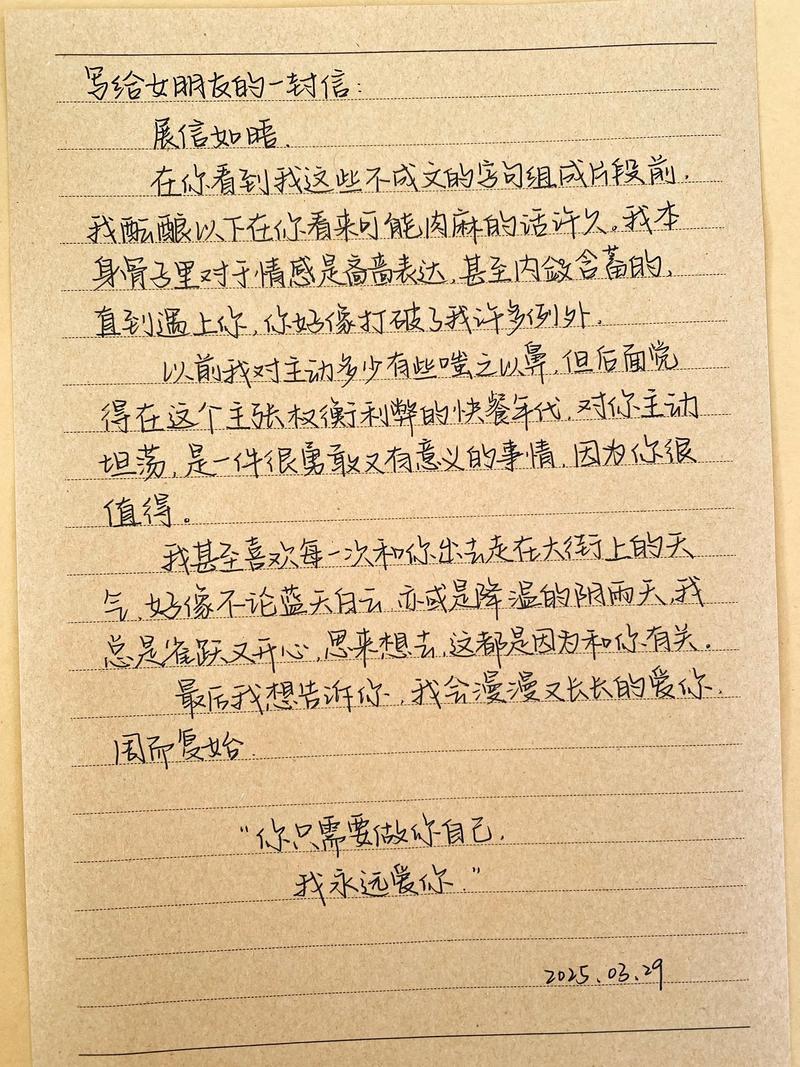 写给女朋友的一封信:
展信如晤.
在你看到我这些不成文的字句组成片段前,
我酝酿以下在你看来可能肉麻的话许久。我本
身骨子里对于情感是啬啬表达,甚至内敛含蓄的,
直到遇上你,你好像打破了我许多例外.
以前我对主动多少有些嗤之以鼻,但后面觉
得在这个主张权衡利弊的快餐年代,对你主动
坦荡,是一件很勇敢又有意义的事情,因为你很
值得。
我甚至喜欢每一次和你出去走在大街上的天
气,好像不论蓝天白云,亦或是降温的阴雨天,我
总是雀跃又开心,思来想去,这都是因为和你有关.
最后我想告诉你,我会漫漫又长长的爱你,
周而复始.
"你只需要做你自己,
我永远爱你."
2025.03.29